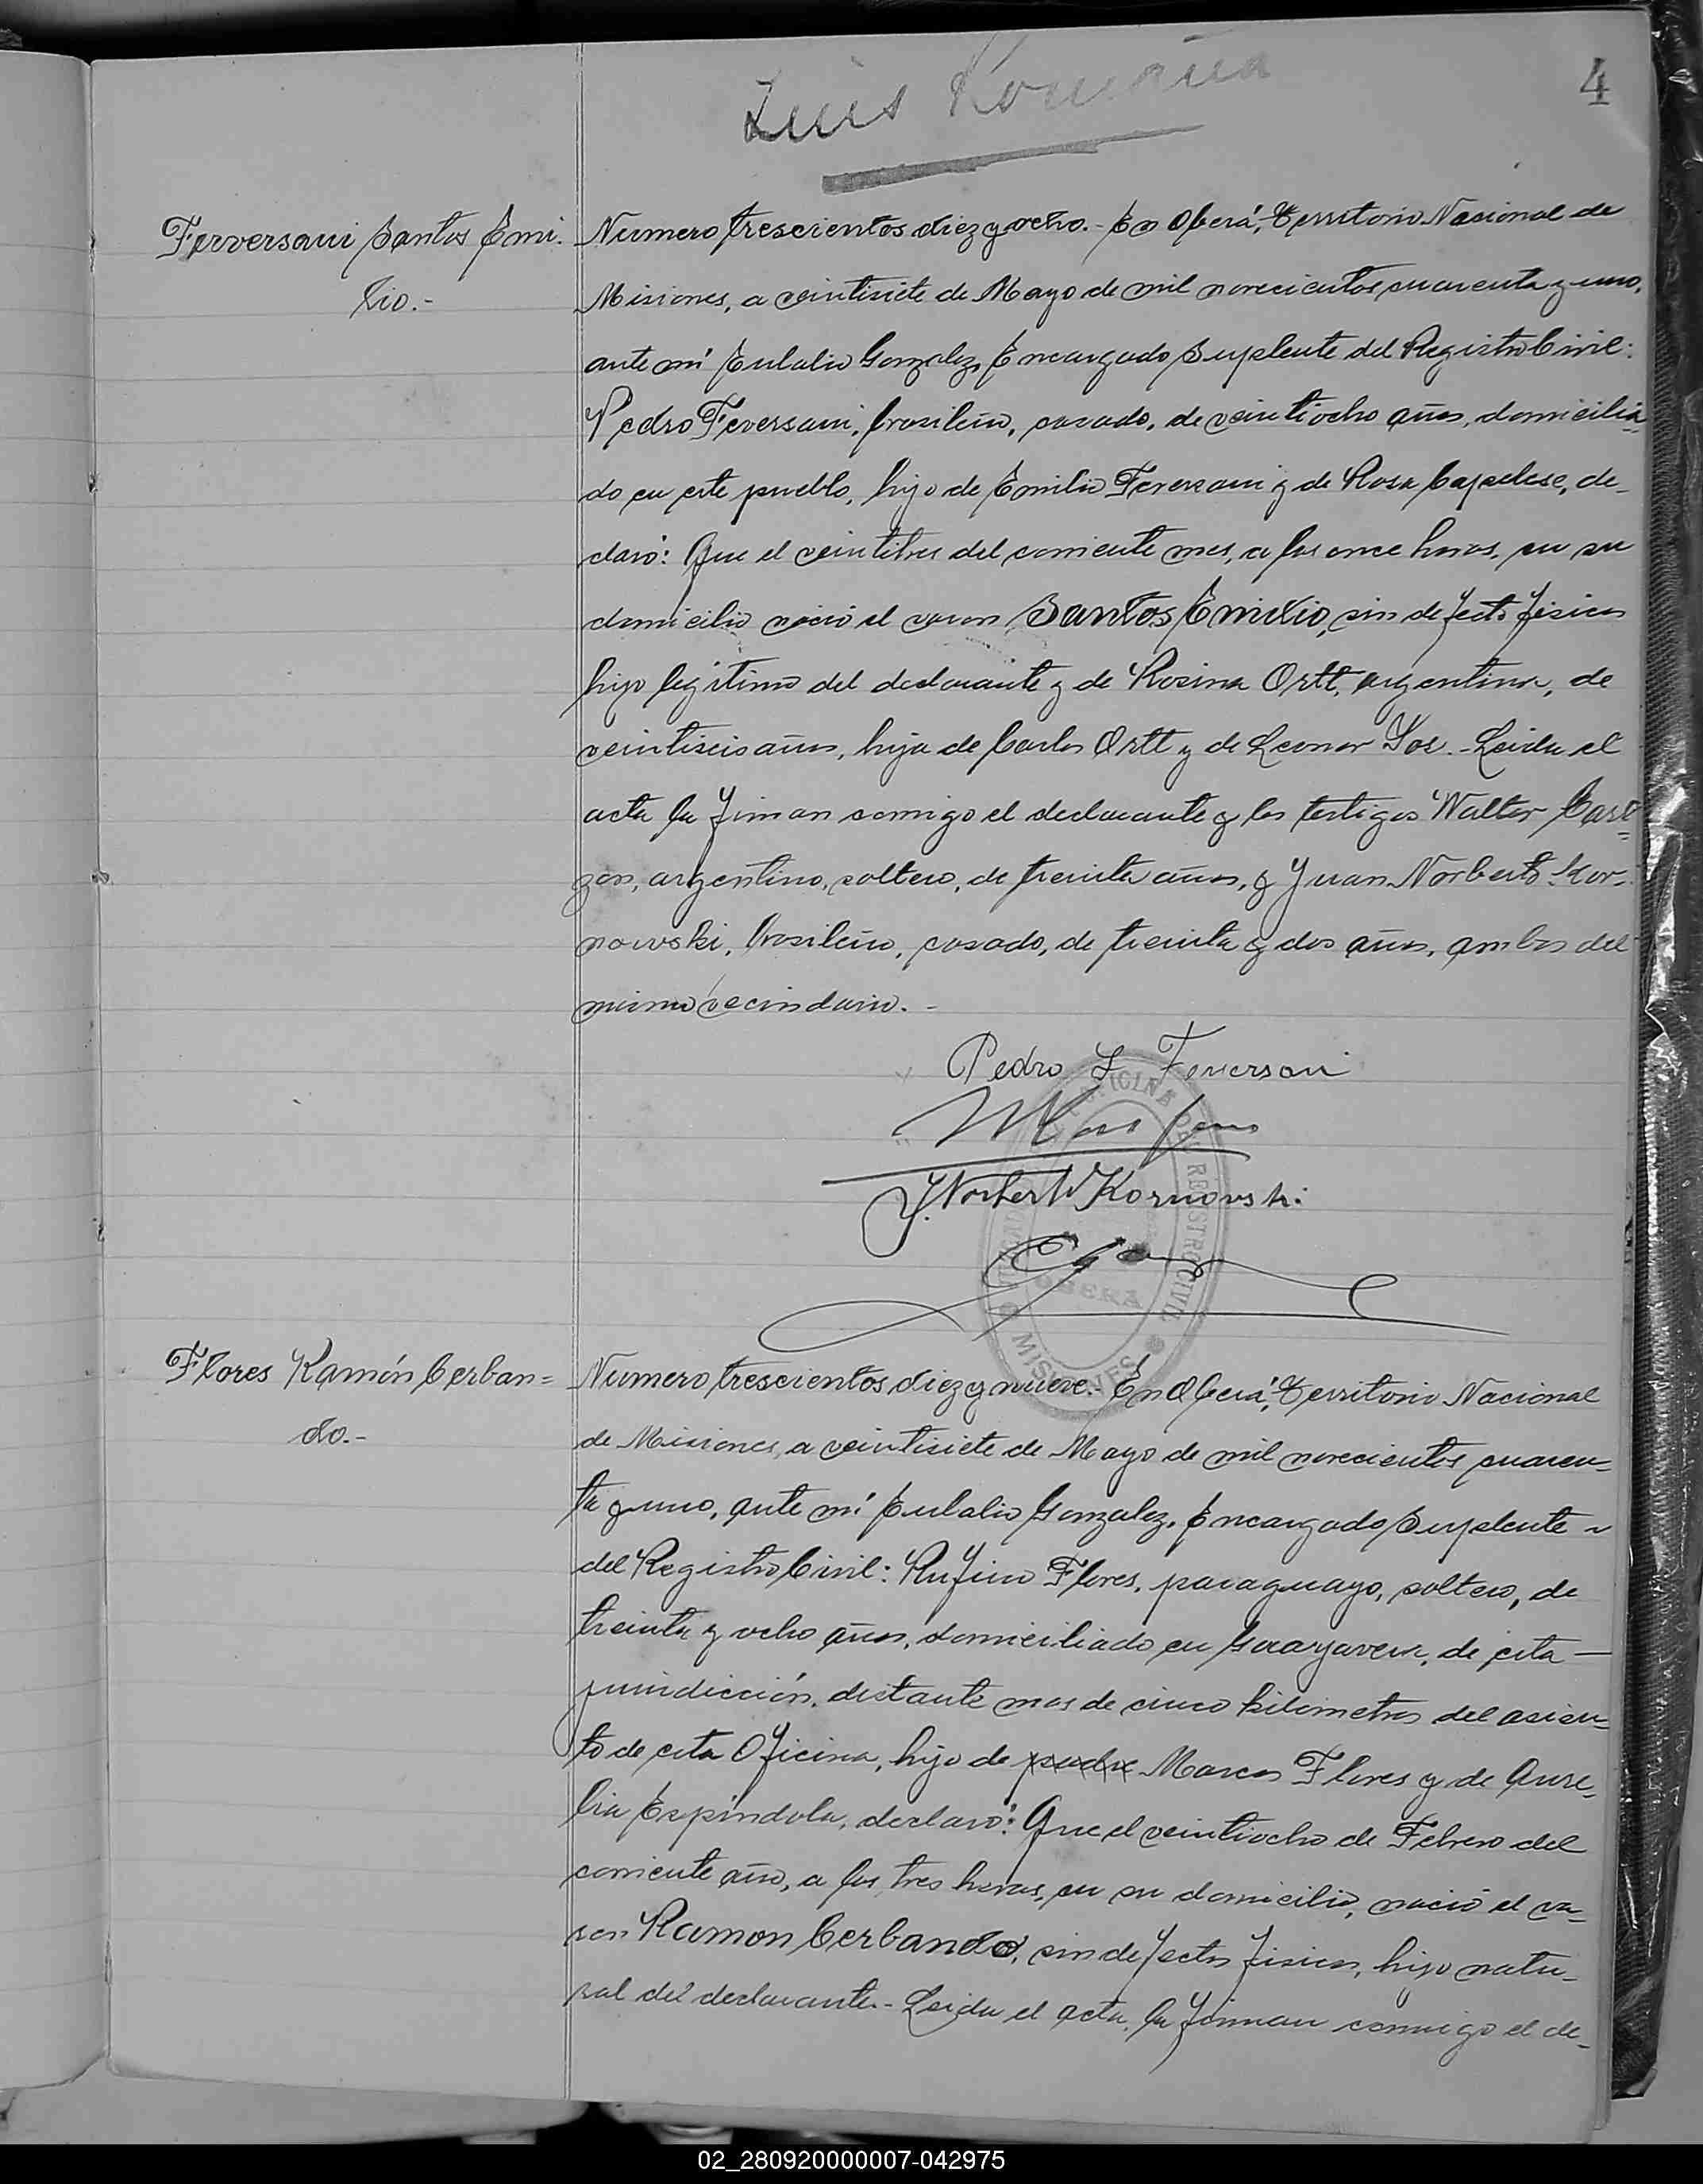 4
Luis
Ferversani Santos Emi-
lio.-
Numero trescientos diez y ocho.- En Oberá, Territorio Nacional de
Misiones, a veintisiete de Mayo de mil novecientos cuarenta y uno,
ante mí Eulalio Gonzalez, Encargado Suplente del Registro Civil:
Pedro Feversani, brasileño, casado, de veintiocho años, domicilia-
do en este pueblo, hijo de Emilio Feversani y de Rosa Capelese, de-
claró: Que el veintitres del corriente mes, a las once horas, en su
domicilio nació el varon Santos Emilio, sin defectos fisicos
hijo legítimo del declarante y de Rosina Ortt, argentina, de
veintiseis años, hija de Carlos Ortt y de Leonor .- Leida el
acta la firman comigo el declarante y los testigos Walter
zon, argentino, soltero, de treinta años, y Juan Norberto Kor-
nowski, brasileño, casado, de treinta y dos años, ambos del
mismo vecindario.-
Pedro L Feversani
J. Norberto Kornovski
OFICINA DEL REGISTRO CIVIL
OBERÁ
MISIONES
Flores Ramón Cerban=
do.-
Numero trescientos diez y nueve.- En Oberá, Territorio Nacional
de Misiones, a veintisiete de Mayo de mil novecientos cuaren=
ta y uno, ante mí Eulalio Gonzalez, Encargado Suplente
del Registro Civil: Rufino Flores, paraguayo, soltero, de
treinta y ocho años, domiciliado en Guayavera, de esta
jurisdicción, distante mas de cinco kilometros del asien=
to de esta Oficina, hijo de padre Marcos Flores y de Aure-
lia Espindola, declaró: Que el veintiocho de Febrero del
corriente año, a las tres horas, en su domicilio, nació el va=
ron Ramon Cerbando, sin defectos fisicos, hijo natu-
ral del declarante.- Leida el acta, la firman conmigo el de-
02_280920000007-042975